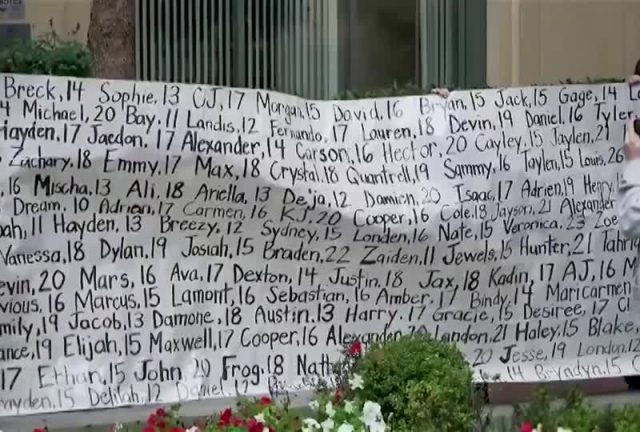 Breck, 14 Sophie, 13 CJ, 17 Morgan, 15 David, 16 Bryan, 15 Jack, 15 Gage, 14
Michael, 20 Bay, 11 Landis, 12 Fernando, 17 Louren, 18 Devin, 19 Daniel, 16 Tyler
Hayden, 17 Jaedon, 17 Alexander, 14 Carson, 16 Hector, 20 Cayley, 15 Jaylen, 21
Zachary, 18 Emmy, 17 Max, 18 Crystal, 18 Quantrell, 19 Sammy, 16 Taylen, 15 Louis, 26
16 Mischa, 13 Ali, 18 Ariella, 13 Deja, 12 Damien, 20 Isaac, 17 Adrien, 19 Henry
Dream, 10 Adrian, 17 Carmen, 16 KJ, 20 Cooper, 16 Cole, 18 Jayson, 21 Alexander
11 Hayden, 13 Breezy, 12 Sydney, 15 London, 16 Nate, 15 Veronica, 23 Zoe
Vanessa, 18 Dylan, 19 Josiah, 15 Braden, 22 Zaiden, 11 Jewels, 16 Hunter, 21
20 Mars, 16 Ava, 17 Dexton, 14 Justin, 18 Jax, 18 Kadin, 17 AJ, 16
16 Marcus, 15 Lamont, 16 Sebastian, 16 Amber, 17 Bindy, 14 Maricarmen
19 Jacob, 13 Damone, 18 Austin, 13 Harry, 17 Gracie, 15 Desiree, 17
19 Elijah, 15 Maxwell, 17 Cooper, 16 Alexander, 20 Landon, 21 Haley, 15 Blake
17 Ethan, 15 John, 20 Frog, 18 20 Jesse, 19 London, 12
15 Delilah, 12 Daniel, 12 14 Bryndyn, 15